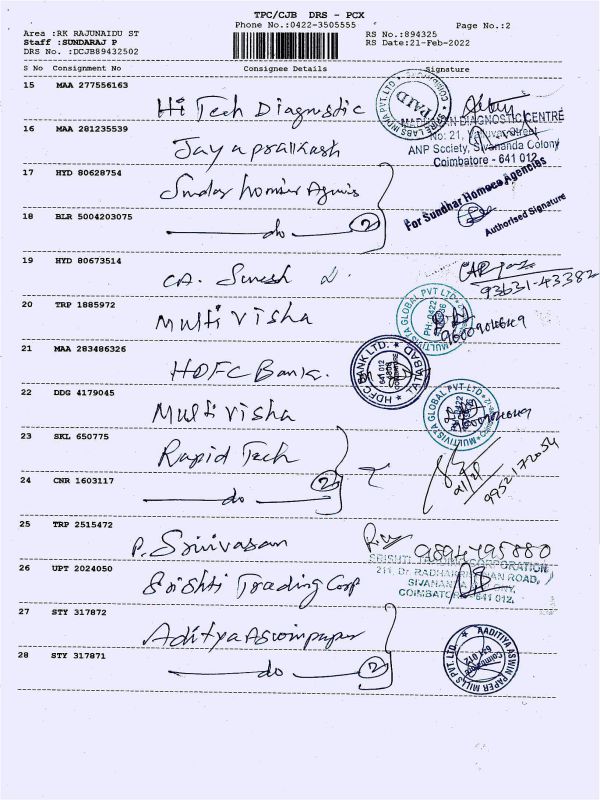 TPC/CJB DRS - PCX
Phone No.:0422-3505555 Page No.:2
Area :RK RAJUNAIDU ST RS No.:894325
Staff :SUNDARAJ P RS Date:21-Feb-2022
DRS No. :DCJB89432502
S No Consignment No Consignee Details Signature
15 MAA 277556163
Hi Tech Diagnostic
PAID
DIAGNOSTIC CENTRE
No: 21, Street
16 MAA 281235539
ANP Society, Sivananda Colony
Jaya prakash
Coimbatore - 641 012
17 HYD 80628754
For Sundhar Homoeo Agencies
Authorised Signature
18 BLR 5004203075
do 2
19 HYD 80673514
CA. Suresh
93631-43382
20 TRP 1885972
Multi Visha
MULTIVISTA GLOBAL PVT LTD
21 MAA 283486326
HDFC Bank.
HDFC BANK LTD.
641 012
TATABAD
22 DDG 4179045
Multi Visha
MULTIVISTA GLOBAL PVT LTD
23 SKL 650775
Rapid Tech
24 CNR 1603117
do 2
9952172054
25 TRP 2515472
P. Srinivasan
9894795880
26 UPT 2024050
Srishti Trading Corp
SRISHTI CORPORATION
211, Dr. ROAD,
COIMBATORE 641 012.
27 STY 317872
Aditya Aswin paper
28 STY 317871
do 2
AADITIYA ASWIN PAPER MILLS PVT. LTD.
Coimbatore
641 012